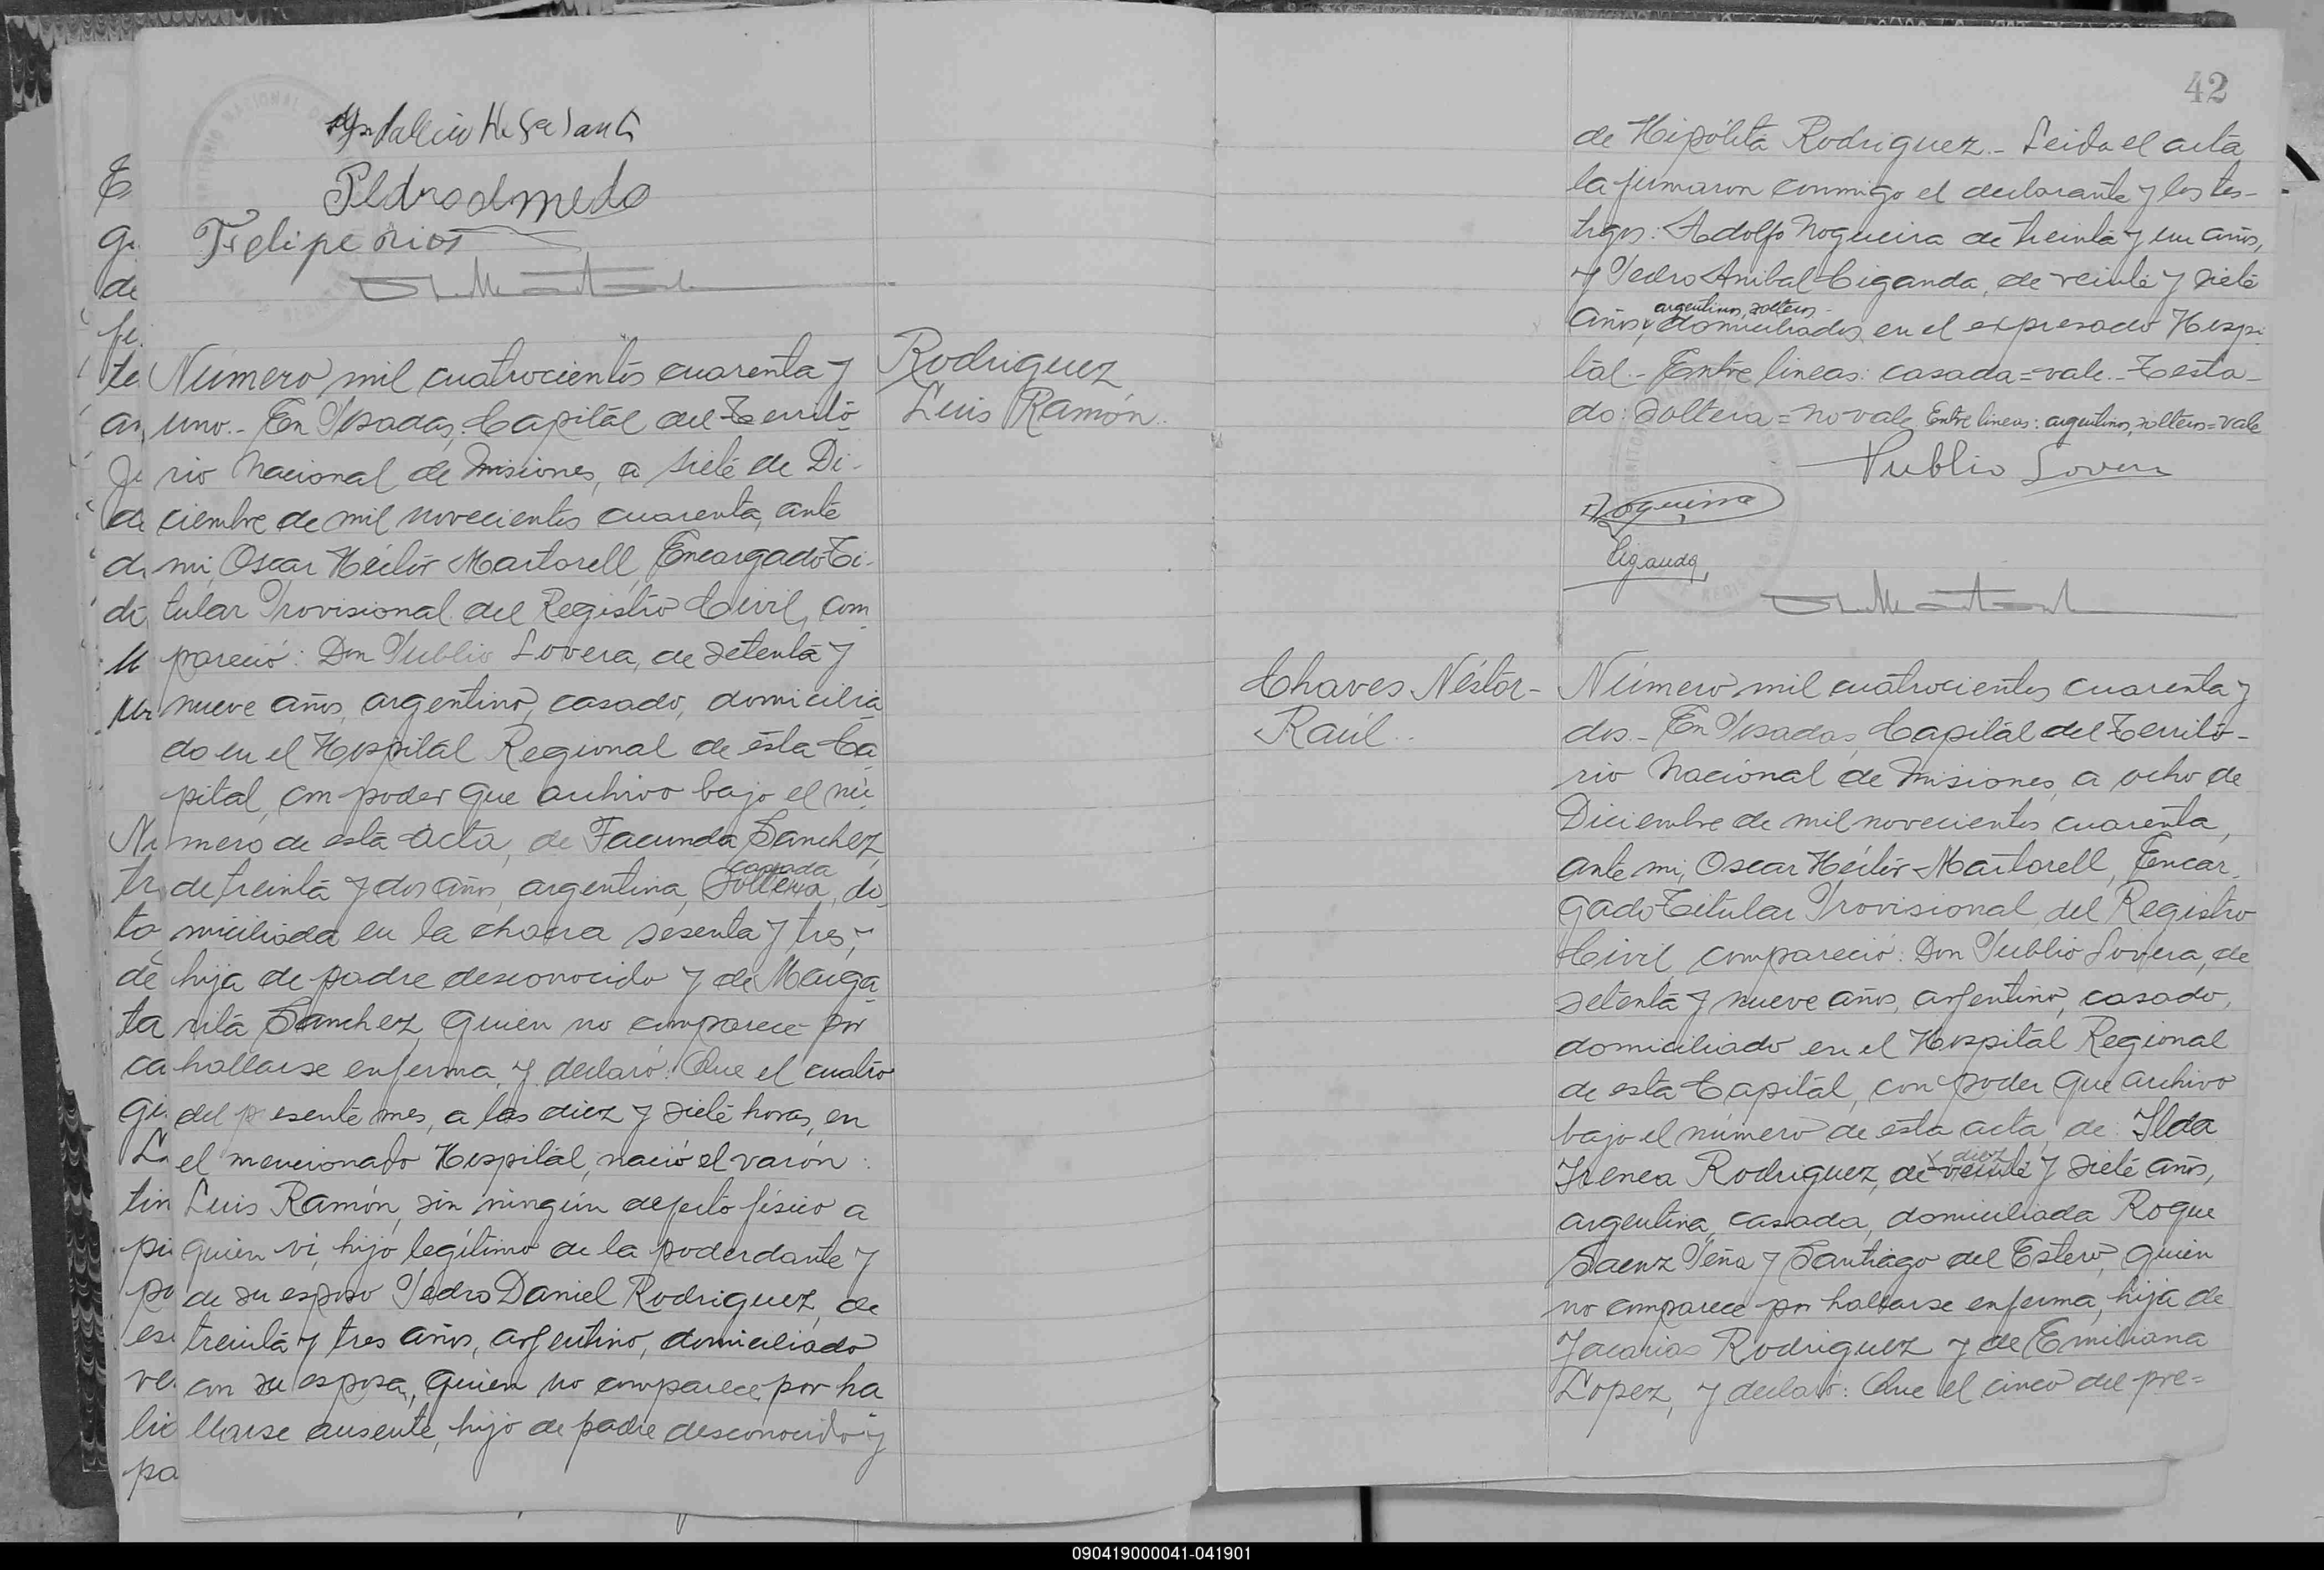 Pedro Olmedo
Felipe Rios
Rodriguez
Luis Ramón..
Número mil cuatrocientos cuarenta y
uno.- En Posadas, Capital del Territo-
rio Nacional de Misiones, a siete de Di-
ciembre de mil novecientos cuarenta, ante
mi, Oscar Héctor Martorell, Encargado Ti-
tular Provisional del Registro Civil, com-
pareció: Don Publio Lovera, de setenta y
nueve años, argentino, casado, domicilia-
do en el Hospital Regional de ésta Ca-
pital, con poder que archivo bajo el nú-
mero de esta acta, de Facunda Sanchez,
casada
de treinta y dos años, argentina, soltera, do-
miciliada en la chacra sesenta y tres,
hija de padre desconocido y de Marga-
rita Sanchez, quien no comparece por
hallarse enferma, y declaró: Que el cuatro
del presente mes, a las diez y siete horas, en
el mencionado Hospital, nació el varón:
Luis Ramón, sin ningún defecto físico a
quien vi, hijo legítimo de la poderdante y
de su esposo Pedro Daniel Rodriguez, de
treinta y tres años, argentino, domiciliado
con su esposa, quien no comparece por ha
llarse ausente, hijo de padre desconocido y
42
de Hipólita Rodriguez.- Leida el acta
la firmaron conmigo el declarante y los tes-
tigos: Adolfo Nogueira de treinta y un años,
y Pedro Anibal Ciganda, de veinte y siete
argentinos, solteros
años, domiciliados en el expresado Hospi-
tal.- Entre lineas: casada=vale.- Testa-
do: soltera=no vale Entre lineas: argentinos, solteros=vale
Publio Lovera
Nogueira
Ciganda,
Chaves Néstor-
Raúl..
Número mil cuatrocientos cuarenta y
dos.- En Posadas, Capital del Territo-
rio Nacional de Misiones, a ocho de
Diciembre de mil novecientos cuarenta,
ante mi, Oscar Héctor Martorell, Encar-
gado Titular Provisional del Registro
Civil, compareció: Don Publio Lovera, de
setenta y nueve años, argentino, casado,
domiciliado en el Hospital Regional
de esta Capital, con poder que archivo
bajo el número de esta acta, de: Ilda
diez
Irenea Rodriguez, de veinte y siete años,
argentina, casada, domiciliada Roque
Saenz Peña y Santiago del Estero, quien
no comparece por hallarse enferma, hija de
Zacarias Rodriguez y de Emiliana
Lopez, y declaró: Que el cinco del pre=
090419000041-041901